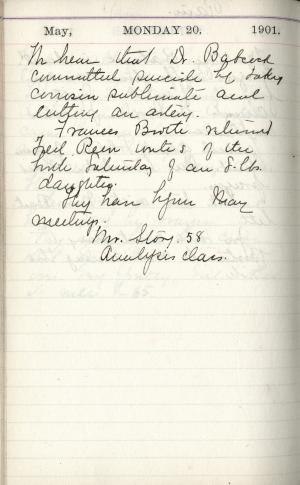 May, MONDAY 20. 1901.
We hear that Dr. Babcock
committed suicide by taking
corrosive sublimate and
cutting an artery.
Frances Booth returned
Fred Reon writes of the
birth Saturday of an 8 lbs.
daughter.
They have Lynn May
meetings.
Mr. Story. 58
Analysis class.